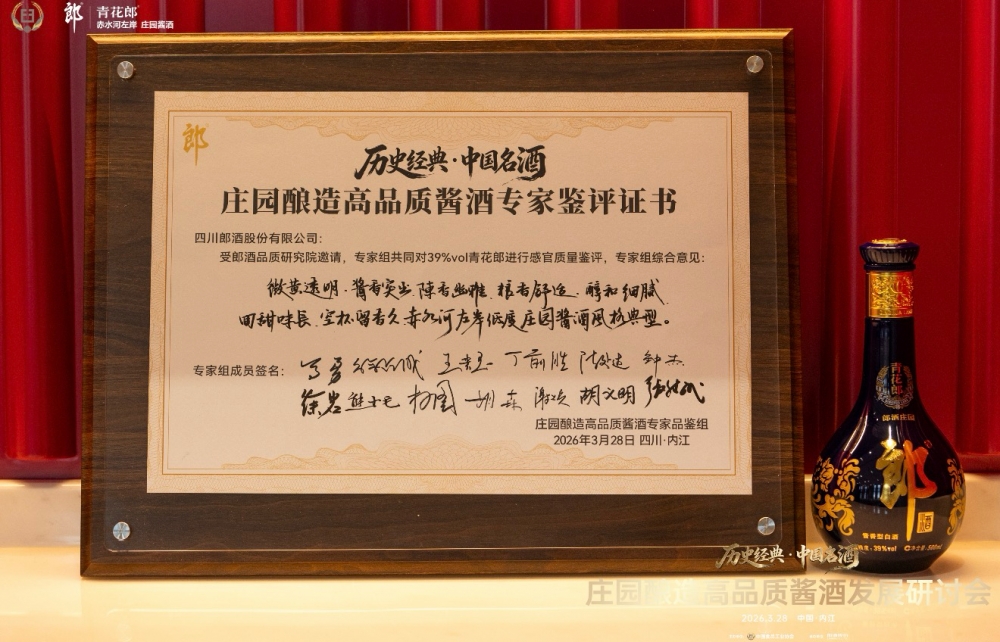 郎 青花郎
赤水河左岸 庄园酱酒
郎
历史经典·中国名酒
庄园酿造高品质酱酒专家鉴评证书
四川郎酒股份有限公司：
受郎酒品质研究院邀请，专家组共同对39%vol青花郎进行感官质量鉴评，专家组综合意见：
微黄透明、酱香突出、陈香幽雅、粮香舒适、醇和细腻、
回甜味长、空杯留香久，赤水河左岸低度庄园酱酒风格典型。
专家组成员签名：
王 丁前胜 钟杰
徐岩 胡森 胡文明
庄园酿造高品质酱酒专家品鉴组
2026年3月28日 四川·内江
青花郎
郎酒庄园
郎
酒
酱香型白酒
39%vol 500mL
历史经典·中国名酒
庄园酿造高品质酱酒发展研讨会
2026.3.28 中国·内江